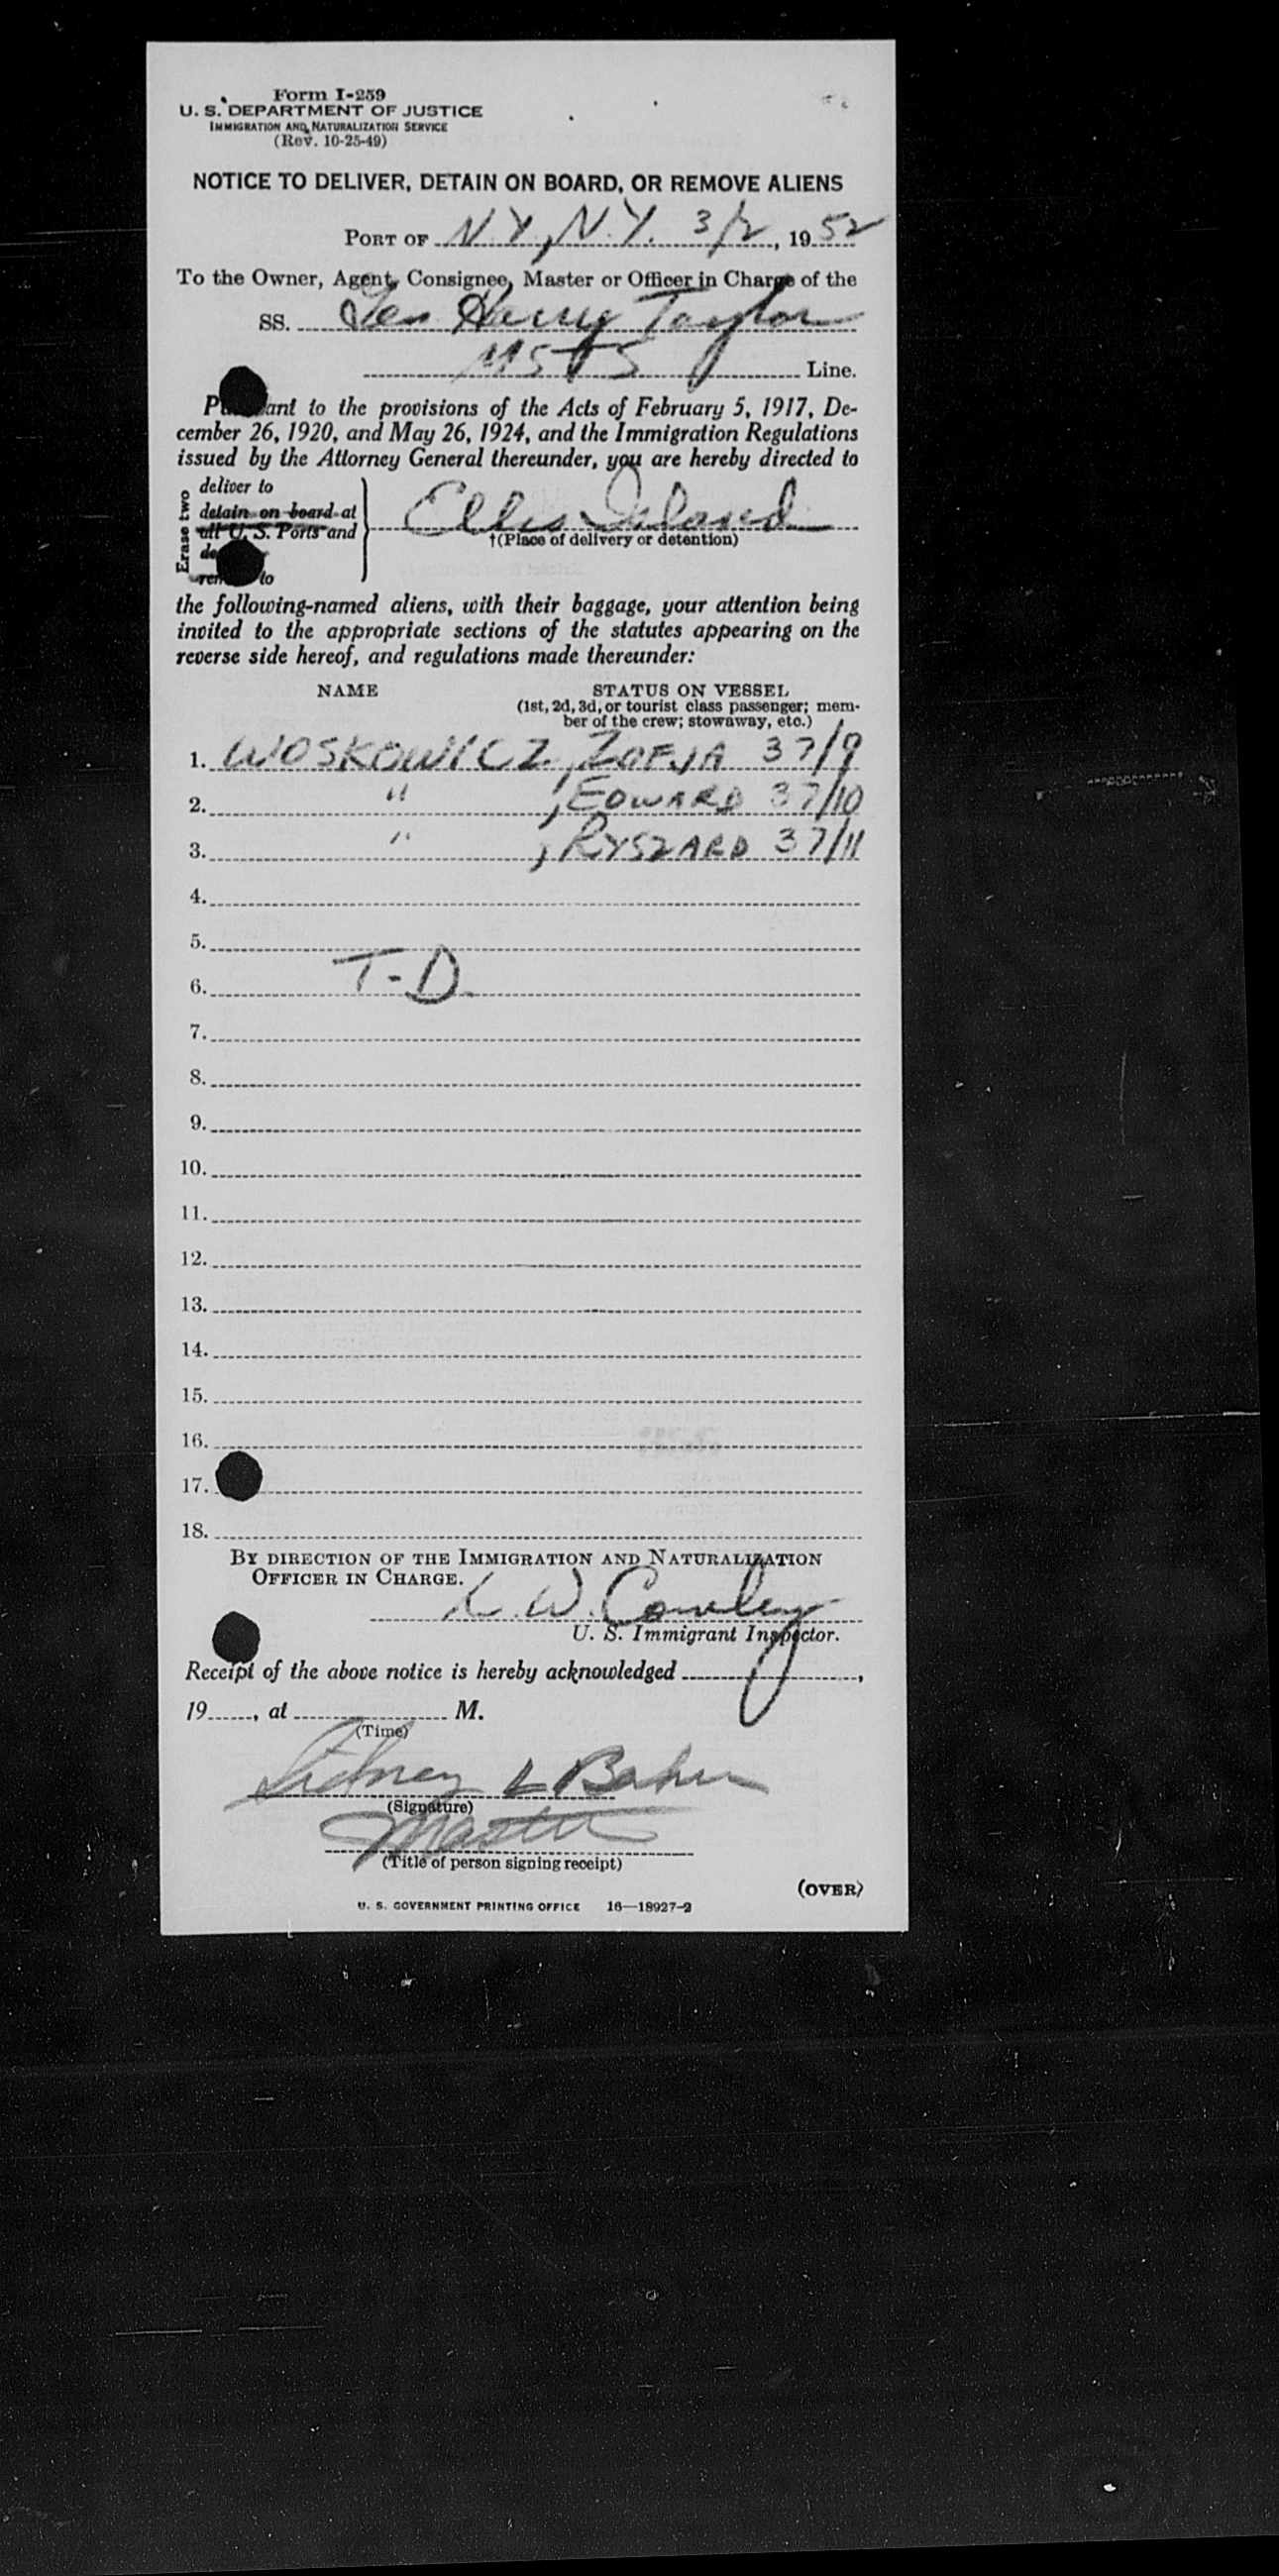 Form I-259
U. S. DEPARTMENT OF JUSTICE
IMMIGRATION AND NATURALIZATION SERVICE
(Rev. 10-25-49)
NOTICE TO DELIVER, DETAIN ON BOARD, OR REMOVE ALIENS
PORT OF N.Y., N.Y. 3/2, 1952
To the Owner, Agent, Consignee, Master or Officer in Charge of the
SS. Gen Harry Taylor
MSTS Line.
to the provisions of the Acts of February 5, 1917, De-
cember 26, 1920, and May 26, 1924, and the Immigration Regulations
issued by the Attorney General thereunder, you are hereby directed to
Erase two
deliver to
detain on board at
all U. S. Ports and
to
Ellis Island
†(Place of delivery or detention)
the following-named aliens, with their baggage, your attention being
invited to the appropriate sections of the statutes appearing on the
reverse side hereof, and regulations made thereunder:
NAME STATUS ON VESSEL
(1st, 2d, 3d, or tourist class passenger; mem-
ber of the crew; stowaway, etc.)
1. WOSKOWICZ, ZOFJA 37/9
2. " , EDWARD 37/10
3. " , RYSZARD 37/11
4.
5.
6. T-D.
7.
8.
9.
10.
11.
12.
13.
14.
15.
16.
17.
18.
BY DIRECTION OF THE IMMIGRATION AND NATURALIZATION
OFFICER IN CHARGE.
W. Cowley
U. S. Immigrant Inspector.
Receipt of the above notice is hereby acknowledged ,
19 , at M.
(Time)
Sidney L Baker
(Signature)
Master
(Title of person signing receipt)
(OVER)
U. S. GOVERNMENT PRINTING OFFICE 16—18927-2